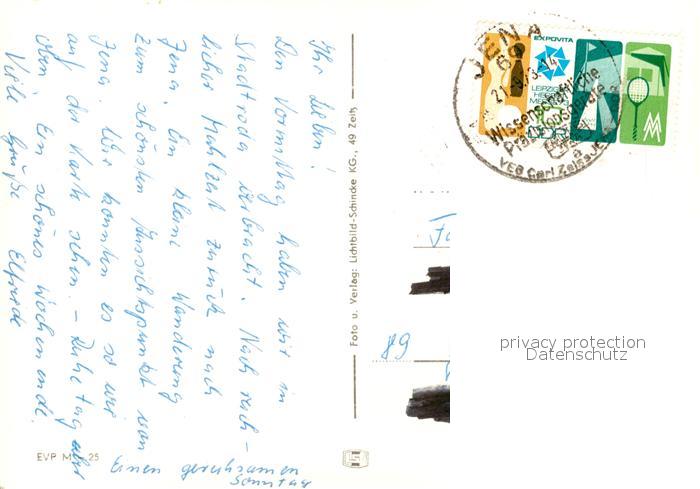 Ihr Lieben!
Den Vormittag haben wir in
Stadtroda verbracht. Nach reich-
licher Mahlzeit zurück nach
Jena. Ein kleine Wanderung
zum schönsten Aussichtspunkt von
Jena. Wir konnten es so wie
auf der Karte sehen. - Ruhetag aber
oben. Ein schönes Wochenende.
Viele Grüße Elfriede
Einen geruhsamen
Sonntag
EVP M -,25
Foto u. Verlag: Lichtbild-Schincke KG., 49 Zeitz
JENA
69
21.-9.73-14
Wissenschaftliche
VEB Carl Zeiss JENA
EXPOVITA
LEIPZIGER
HERBST
MESSE
DDR
89
privacy protection
Datenschutz